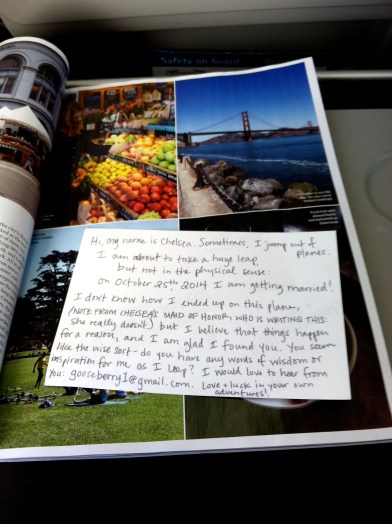 Safety on board
Hi, my name is Chelsea. Sometimes, I jump out of
planes.
I am about to take a huge leap,
but not in the physical sense:
on October 25th, 2014 I am getting married!
I don't know how I ended up on this plane,
(NOTE FROM CHELSEA'S MAID OF HONOR, WHO IS WRITING THIS:
she really doesn't) but I believe that things happen
for a reason, and I am glad I found you. You seem
like the wise sort - do you have any words of wisdom or
inspiration for me as I leap? I would love to hear from
you: gooseberry1@gmail.com. Love + luck in your own
adventures!